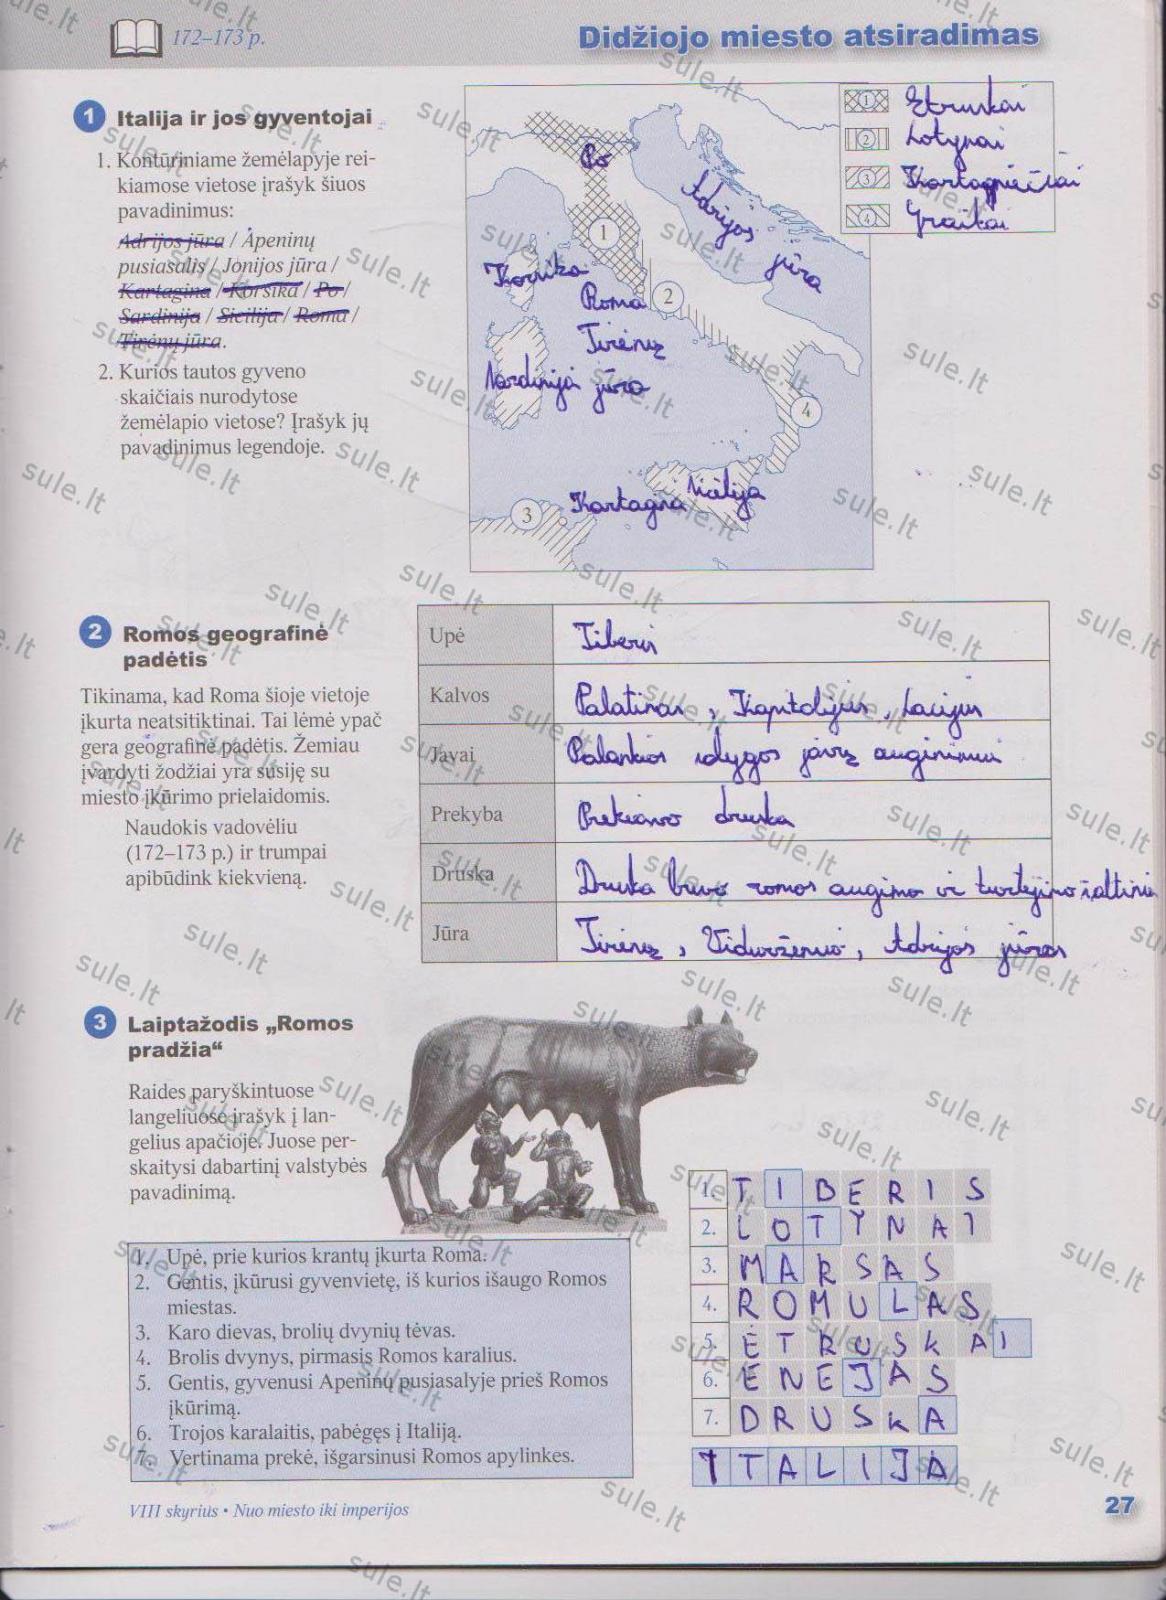 172–173 p.
Didžiojo miesto atsiradimas
1 Italija ir jos gyventojai
1. Kontūriniame žemėlapyje rei-
kiamose vietose įrašyk šiuos
pavadinimus:
Adrijos jūra / Apeninų
pusiasalis / Jonijos jūra /
Kartagina / Korsika / Po /
Sardinija / Sicilija / Roma /
Tirėnų jūra.
2. Kurios tautos gyveno
skaičiais nurodytose
žemėlapio vietose? Įrašyk jų
pavadinimus legendoje.
1 Etruskai
2 Lotynai
3 Kartaginiečiai
4 Graikai
Po
Adrijos jūra
1
Korsika
Roma
2
Tirėnų
Sardinija jūra
4
Sicilija
Kartagina
3
2 Romos geografinė
padėtis
Tikinama, kad Roma šioje vietoje
įkurta neatsitiktinai. Tai lėmė ypač
gera geografinė padėtis. Žemiau
įvardyti žodžiai yra susiję su
miesto įkūrimo prielaidomis.
Naudokis vadovėliu
(172–173 p.) ir trumpai
apibūdink kiekvieną.
Upė Tiberis
Kalvos Palatinas, Kapitolijus, Lacijus
Javai Palankios sąlygos javų auginimui
Prekyba Prekiavo druska
Druska Druska buvo romos augimo ir turtėjimo šaltinis
Jūra Tirėnų, Viduržemio, Adrijos jūros
3 Laiptažodis „Romos
pradžia“
Raides paryškintuose
langeliuose įrašyk į lan-
gelius apačioje. Juose per-
skaitysi dabartinį valstybės
pavadinimą.
1. Upė, prie kurios krantų įkurta Roma.
2. Gentis, įkūrusi gyvenvietę, iš kurios išaugo Romos
miestas.
3. Karo dievas, brolių dvynių tėvas.
4. Brolis dvynys, pirmasis Romos karalius.
5. Gentis, gyvenusi Apeninų pusiasalyje prieš Romos
įkūrimą.
6. Trojos karalaitis, pabėgęs į Italiją.
7. Vertinama prekė, išgarsinusi Romos apylinkes.
1. TIBERIS
2. LOTYNAI
3. MARSAS
4. ROMULAS
5. ETRUSKAI
6. ENEJAS
7. DRUSKA
ITALIJA
VIII skyrius • Nuo miesto iki imperijos
27
sule.lt